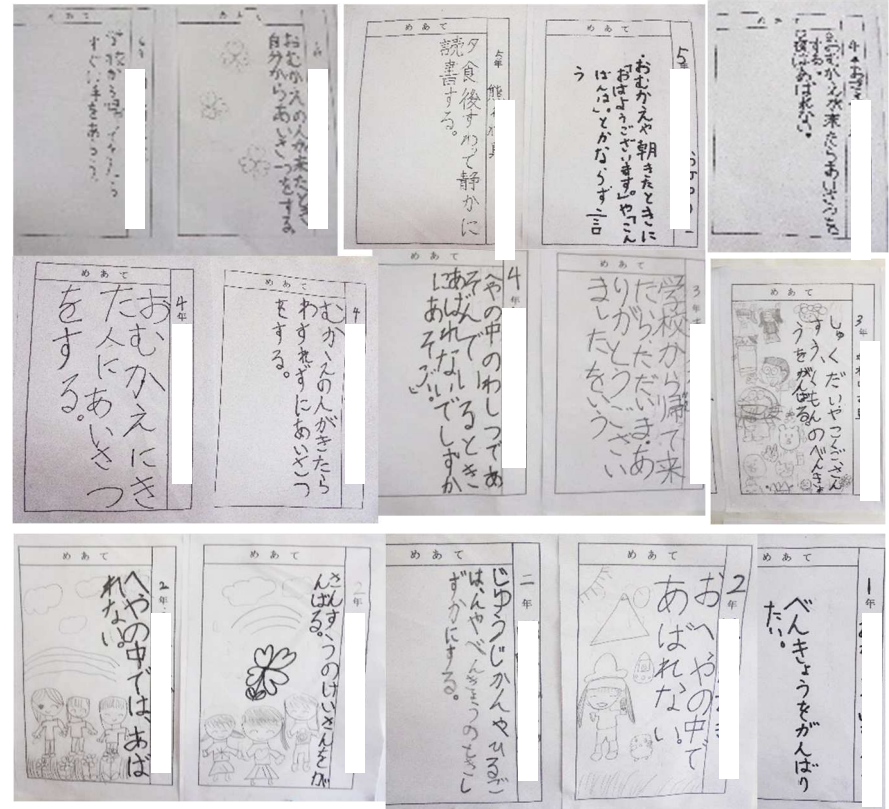 めあて
学校から帰ってきたら
すぐに手をあらう。
めあて
おむかえの人が来たとき
自分からあいさつをする
めあて
5年
夕食後すわって静かに
読書する。
めあて
5
・おむかえや朝きたときに
「おはようございます。」や「こん
ばんは。」とかならず言
う
めあて
4年
おむかえが来たらあいさつを
する。
あばれない。
めあて
4年
おむかえにき
た人にあいさつ
をする。
めあて
4
むかえの人がきたら
わすれずにあいさつ
をする。
4年
へやの中のわしつであ
そんでいるとき
あばれないでしずか
にあそぶ。
めあて
3年
学校から帰て来
たら、ただいま。あ
りがとうござい
ましたをいう
めあて
3年
しゅくだいやこくご、さん
すう、くもんのべんきょ
うをがんばる。
めあて
2年
へやの中では、あば
れない。
めあて
2年
さんすうのけいさんをが
んばる。
めあて
二年
じゆうじかんやひるご
はんやべんきょうのときし
ずかにする。
めあて
2年
おへやの中で
あばれない。
めあて
1年
べんきょうをがんばり
たい。